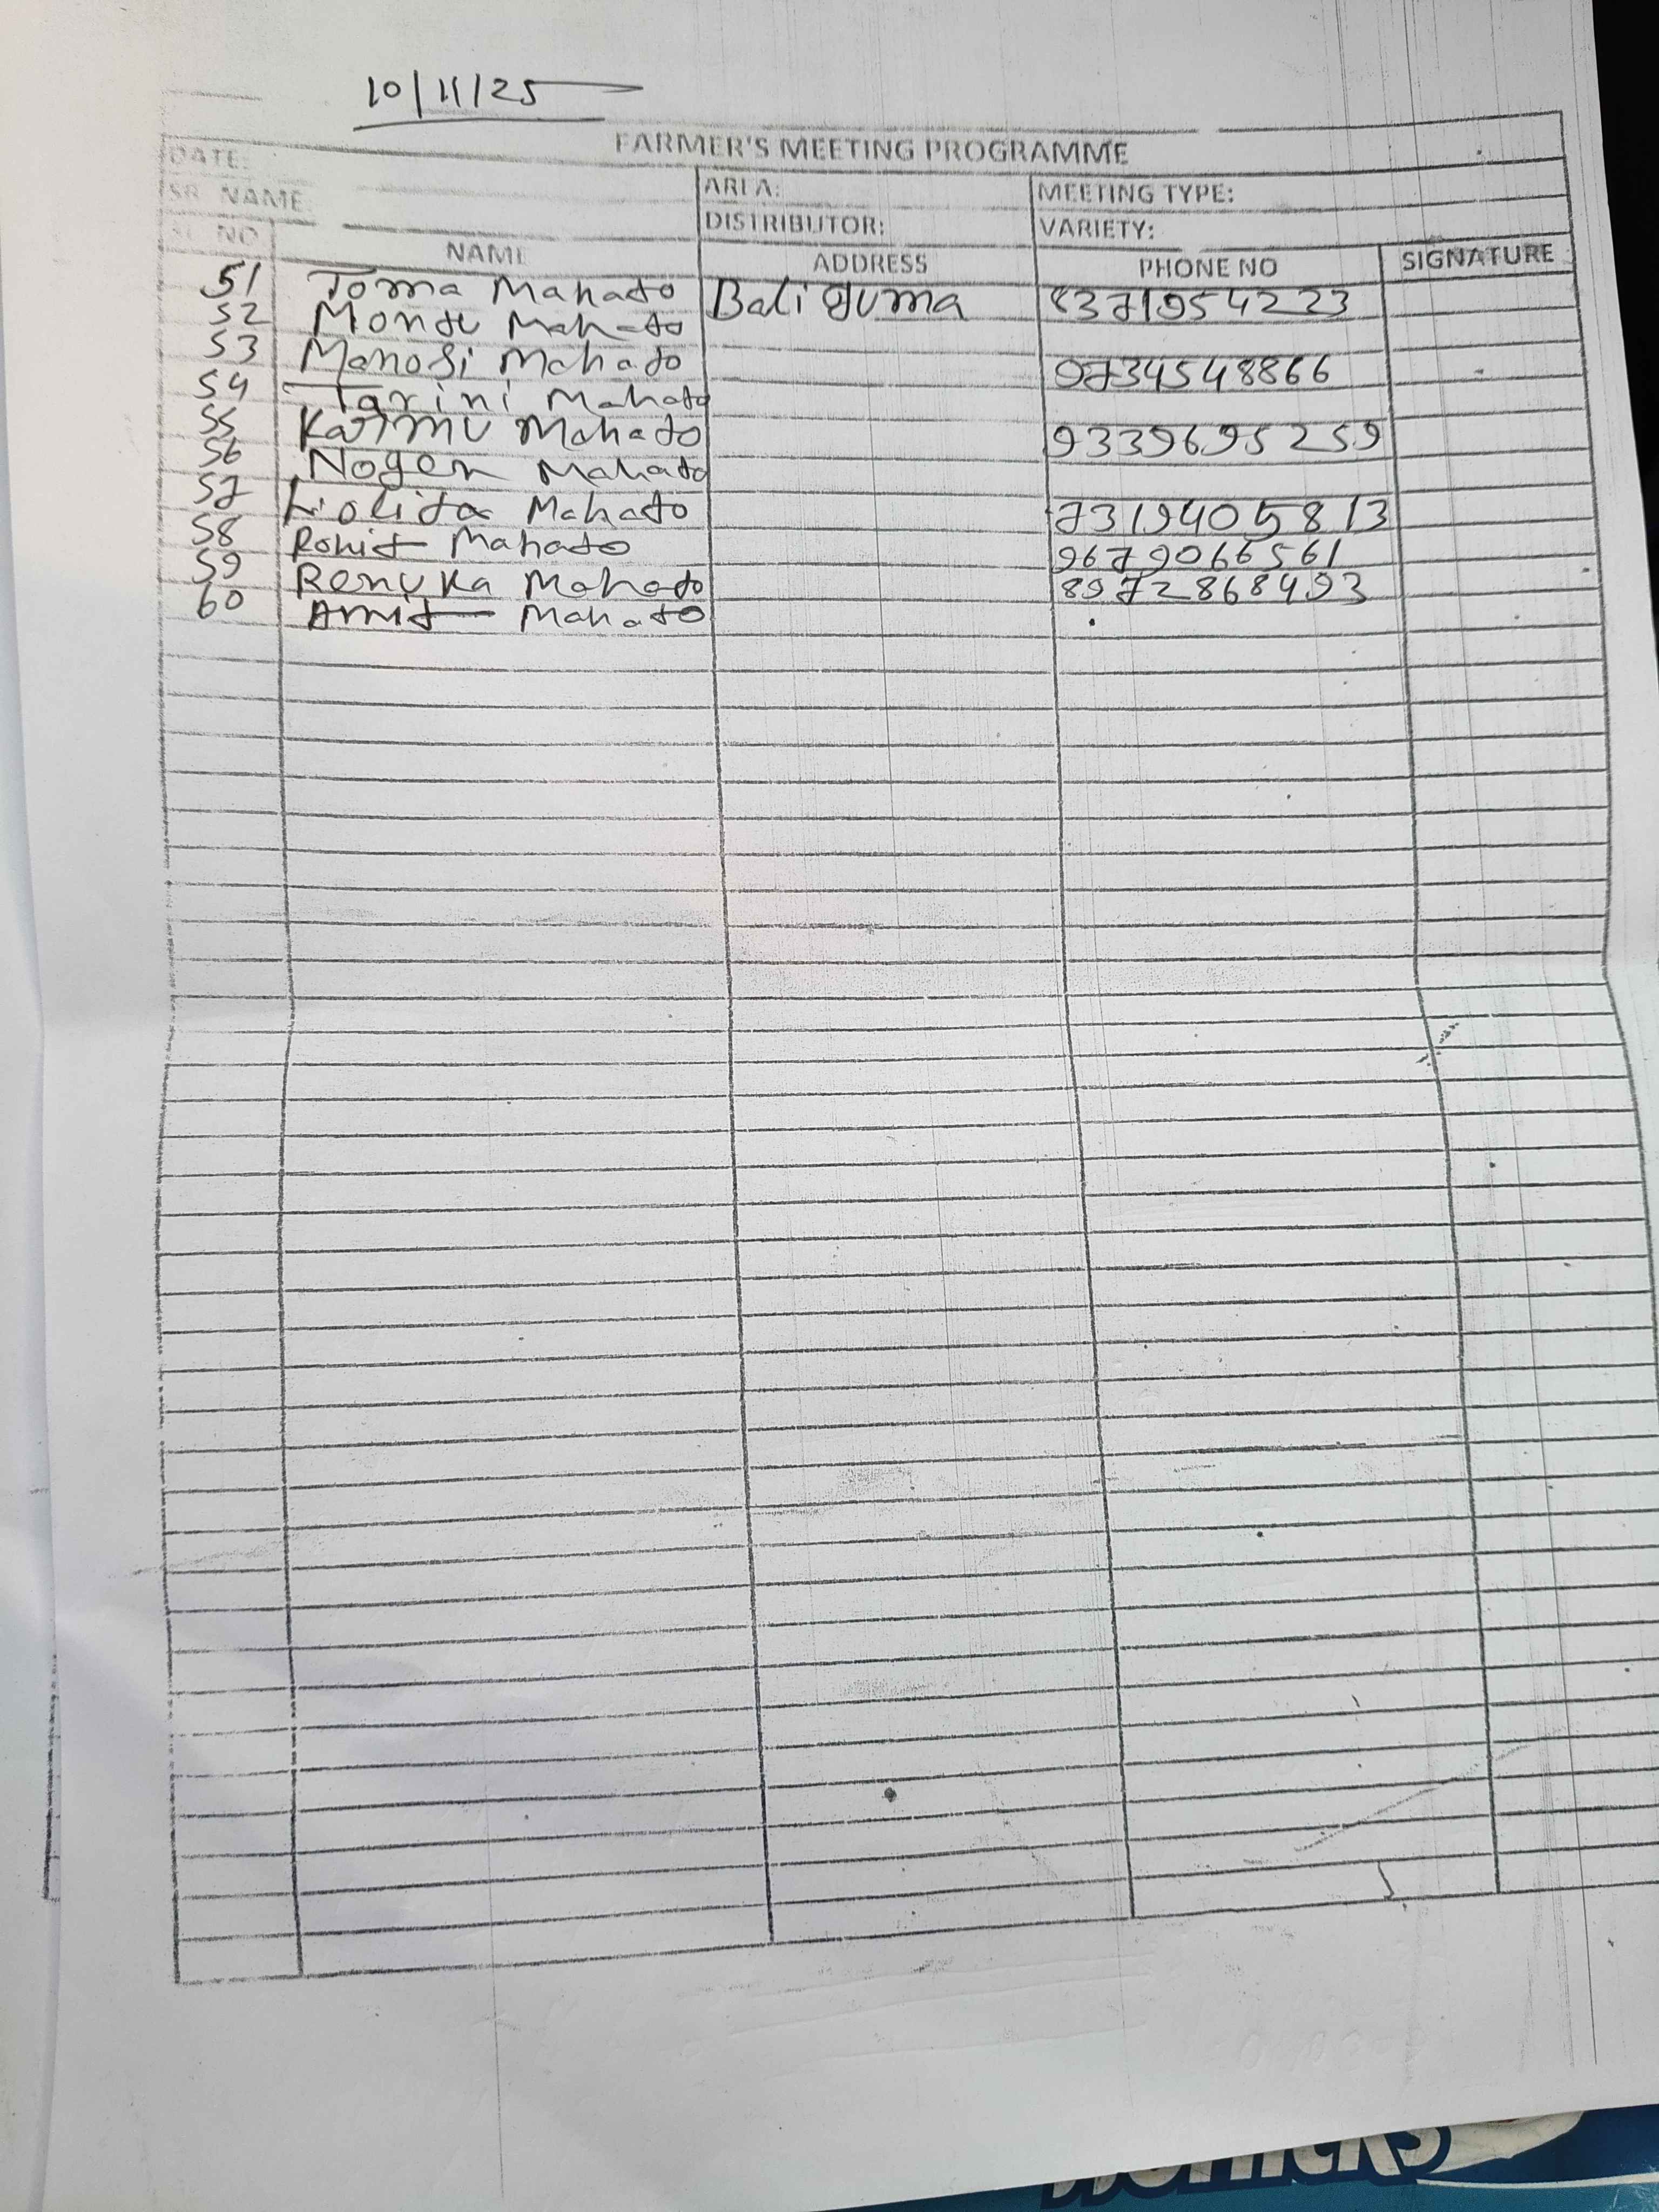 10/11/25
FARMER'S MEETING PROGRAMME
DATE:
SR. NAME: AREA: MEETING TYPE:
DISTRIBUTOR: VARIETY:
SL NO NAME ADDRESS PHONE NO SIGNATURE
51 Toma Mahato Baliguma 8371954223
52 Montu Mahato
53 Manosi Mahato 9734548866
54 Tarini Mahato
55 Karmu Mahato 9339695259
56 Nogen Mahato
57 Lolita Mahato 7319405813
58 Rohit Mahato 9679066561
59 Renuka Mahato 8972868493
60 Amit Mahato
Horlicks